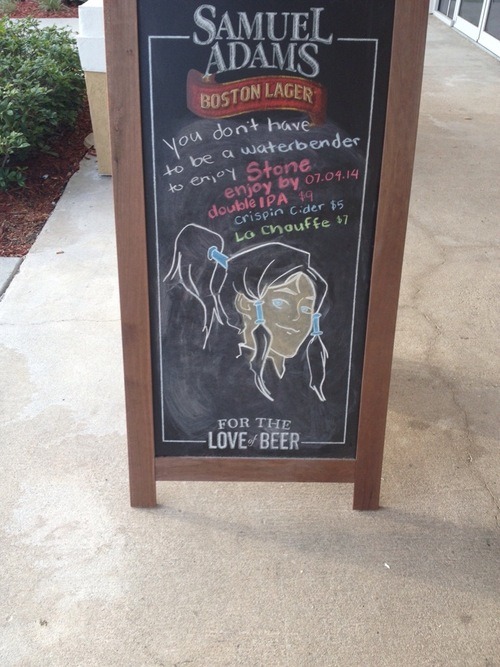 SAMUEL
ADAMS
BOSTON LAGER
you don't have
to be a waterbender
to enjoy Stone
enjoy by 07.04.14
double IPA $9
Crispin Cider $5
La Chouffe $7
FOR THE
LOVE of BEER